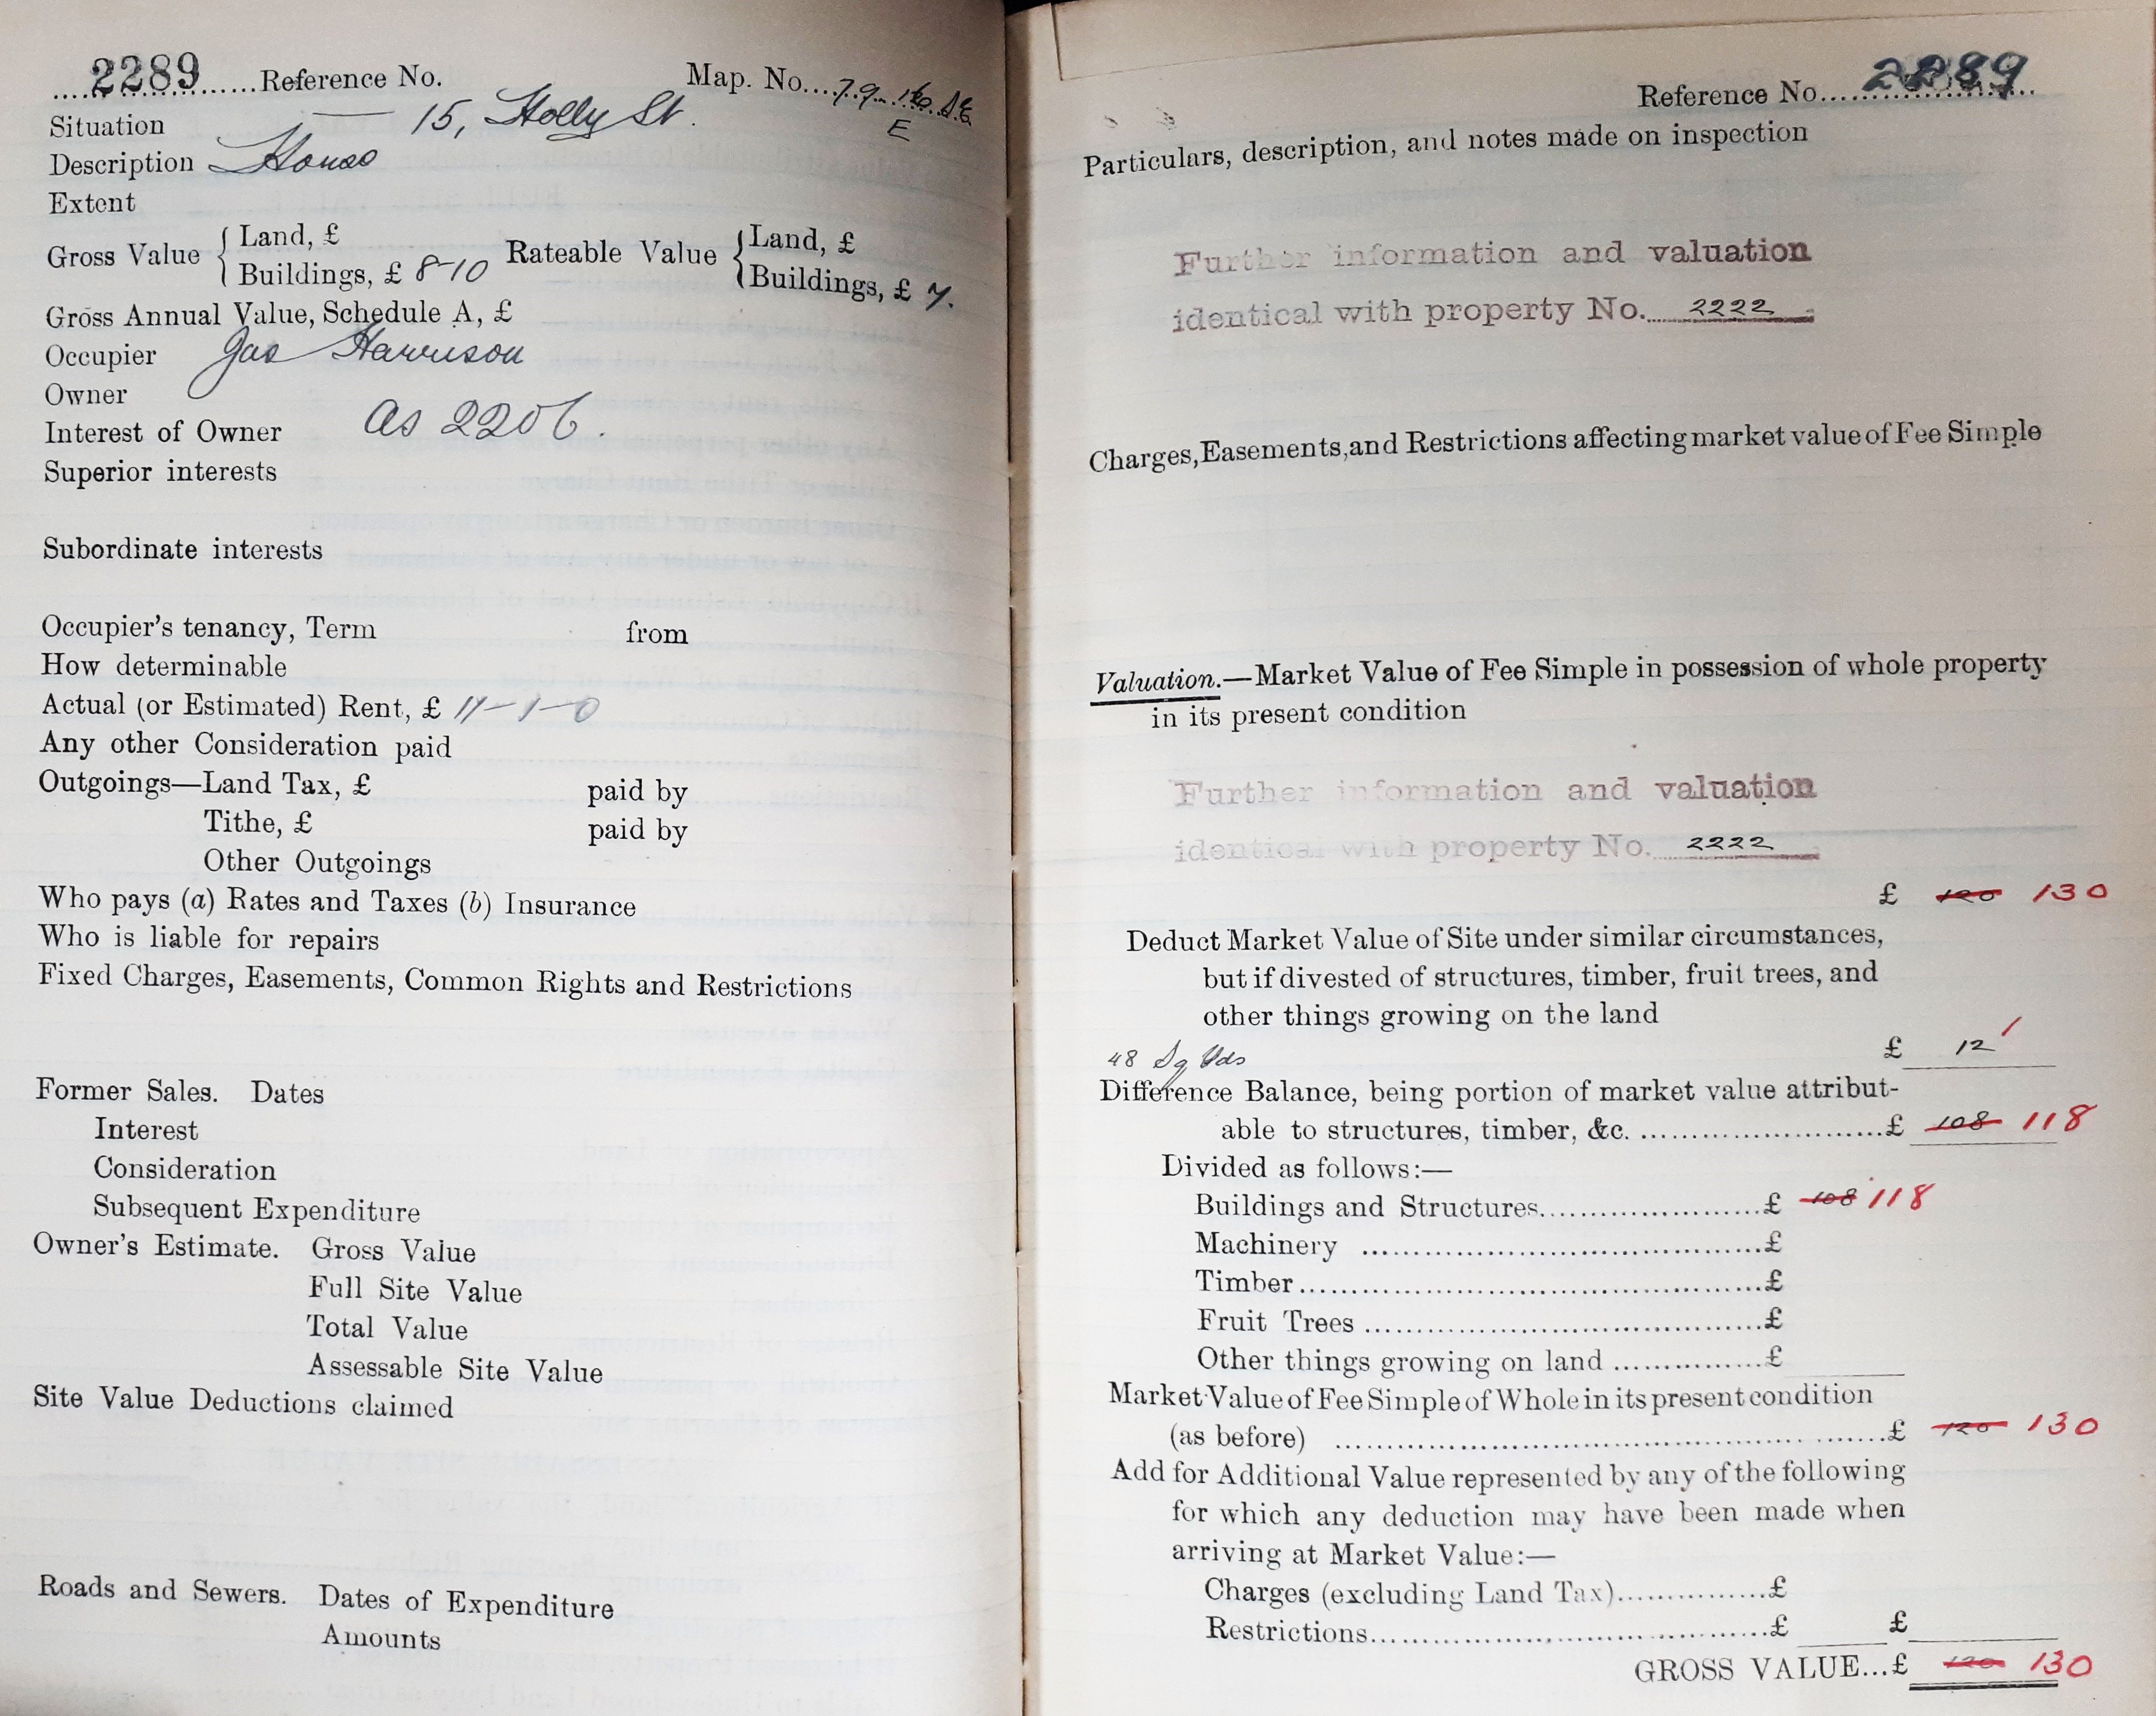 2289 Reference No. Map. No. 79. 16. S.E.
E
Situation — 15, Holly St.
Description House
Extent
Gross Value { Land, £ Rateable Value { Land, £
Buildings, £ 8-10 Buildings, £ 7.
Gross Annual Value, Schedule A, £
Occupier Jas Harrison
Owner
Interest of Owner as 2206.
Superior interests
Subordinate interests
Occupier's tenancy, Term from
How determinable
Actual (or Estimated) Rent, £ 11-1-0
Any other Consideration paid
Outgoings—Land Tax, £ paid by
Tithe, £ paid by
Other Outgoings
Who pays (a) Rates and Taxes (b) Insurance
Who is liable for repairs
Fixed Charges, Easements, Common Rights and Restrictions
Former Sales. Dates
Interest
Consideration
Subsequent Expenditure
Owner's Estimate. Gross Value
Full Site Value
Total Value
Assessable Site Value
Site Value Deductions claimed
Roads and Sewers. Dates of Expenditure
Amounts
Reference No. 2289
Particulars, description, and notes made on inspection
Further information and valuation
identical with property No. 2222
Charges, Easements, and Restrictions affecting market value of Fee Simple
Valuation.—Market Value of Fee Simple in possession of whole property
in its present condition
Further information and valuation
identical with property No. 2222
£ 120 130
Deduct Market Value of Site under similar circumstances,
but if divested of structures, timber, fruit trees, and
other things growing on the land
48 Sq Yds £ 12
Difference Balance, being portion of market value attribut-
able to structures, timber, &c. £ 108 118
Divided as follows:—
Buildings and Structures £ 108 118
Machinery £
Timber £
Fruit Trees £
Other things growing on land £
Market Value of Fee Simple of Whole in its present condition
(as before) £ 120 130
Add for Additional Value represented by any of the following
for which any deduction may have been made when
arriving at Market Value:—
Charges (excluding Land Tax) £
Restrictions £ £
GROSS VALUE...£ 120 130